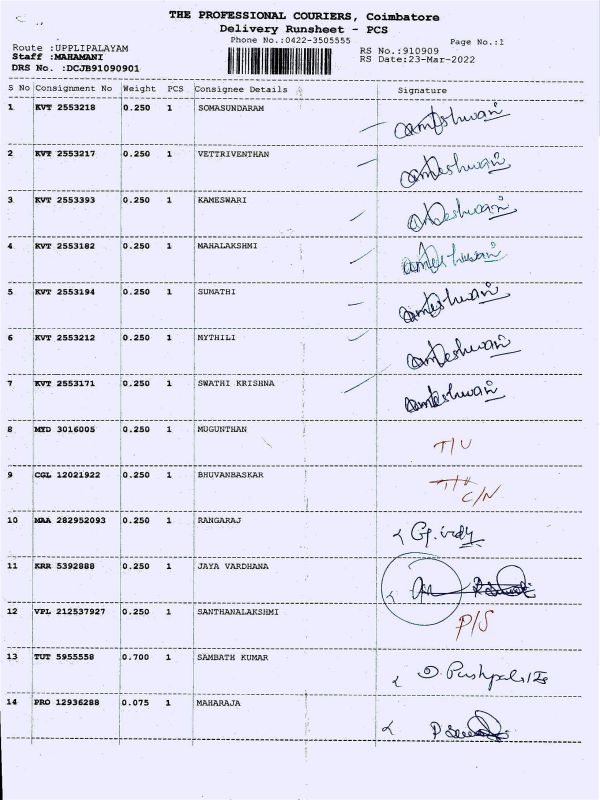 THE PROFESSIONAL COURIERS, Coimbatore
Delivery Runsheet - PCS
Phone No.:0422-3505555
Page No.:1
Route :UPPLIPALAYAM
RS No.:910909
Staff :MAHAMANI
RS Date:23-Mar-2022
DRS No. :DCJB91090901
S No Consignment No Weight PCS Consignee Details Signature
1 KVT 2553218 0.250 1 SOMASUNDARAM
2 KVT 2553217 0.250 1 VETTRIVENTHAN
3 KVT 2553393 0.250 1 KAMESWARI
4 KVT 2553182 0.250 1 MAHALAKSHMI
5 KVT 2553194 0.250 1 SUMATHI
6 KVT 2553212 0.250 1 MYTHILI
7 KVT 2553171 0.250 1 SWATHI KRISHNA
8 MYD 3016005 0.250 1 MUGUNTHAN T/U
9 CGL 12021922 0.250 1 BHUVANBASKAR C/N
10 MAA 282952093 0.250 1 RANGARAJ
11 KRR 5392888 0.250 1 JAYA VARDHANA
12 VPL 212537927 0.250 1 SANTHANALAKSHMI P/S
13 TUT 5955558 0.700 1 SAMBATH KUMAR
14 PRO 12936288 0.075 1 MAHARAJA